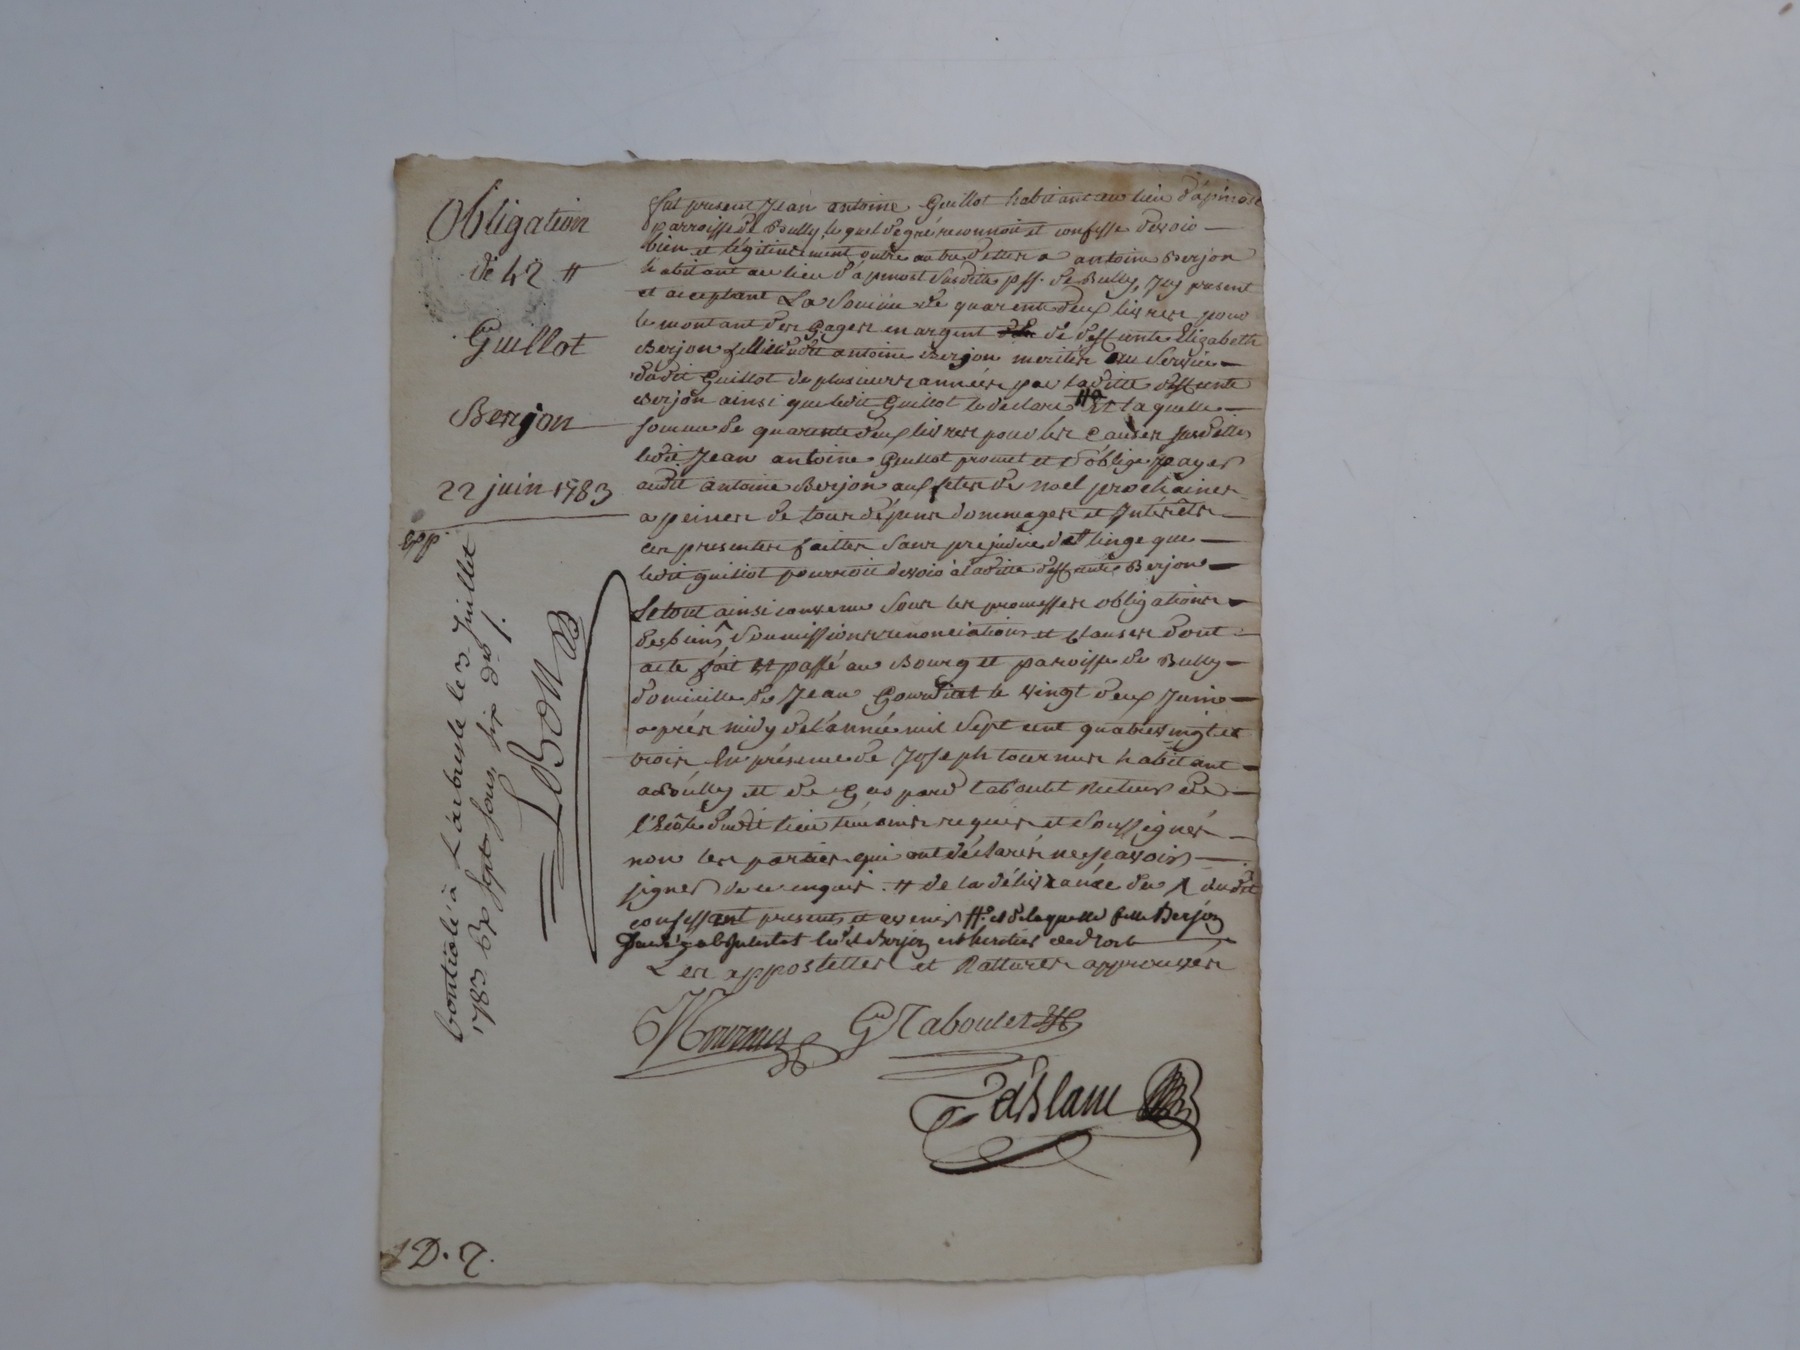 Obligation
de 42 ₶
Guillot
Berjon
22 juin 1783
Exp
fut present Jean antoine Guillot habitant au lieu d'apinost
parroisse de Bully lequel de gré reconnoit et confesse devoir
bien et légitimement outre autre dettes a antoine Berjon
habitant au lieu d'apinost susditte pss. de Bully, Icy present
et acceptant La somme de quarente deux livres pour
le montant des Gages en argent de deffunte Elizabeth
Berjon fille dudit antoine Berjon merités au service
dudit Guillot de plusieurs années par laditte deffunte
Berjon ainsi que ledit Guillot le declare Et laquelle
somme de quarente deux livres pour les causes susdittes
ledit Jean antoine Guillot promet et s'oblige payer
audit antoine Berjon aux fetes de noel prochaines
a peines de tous dépens dommages et Intérêts
ces presentes faittes sans prejudice du linge que
ledit guillot pourroit devoir à laditte deffunte Berjon
Le tout ainsi convenu sous les promesses obligations
des biens, soumissions renonciations et Clauses dont
acte fait Et passé au Bourg et paroisse de Bully
domicille de Jean Gourdiat le vingt deux Juin
après midy de l'année mil sept cent quatrevingt et
trois En présence de Joseph tournus habitant
a Bully et de Gaspard taboulet Recteur de
l'École dudit lieu témoins requis et soussignés
non les parties qui ont déclarés ne sçavoir
signer de ce enquis. ₶ de la délivrance du
confessant presents et avenir et de laquelle fille Berjon
ledit Berjon est heritier de droit
Les appostilles et Rattures approuvés
JTournus GTaboulet
Deslane
Controlé à L'arbresle le 3 Juillet
1783 Rx sept sous six drs /.
LeBon
D. 7.